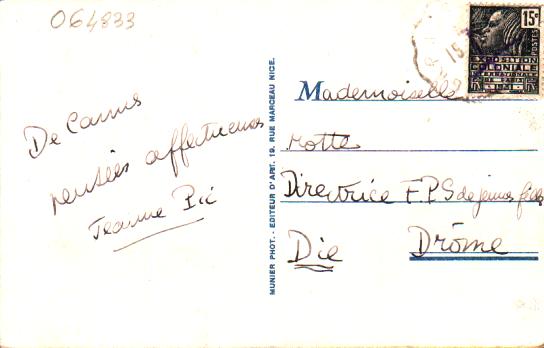 064833
De Cannes
pensées affectueuses
Jeanne Pic
MUNIER PHOT. - EDITEUR D'ART. 19, RUE MARCEAU NICE.
15c
POSTES
EXPOSITION
COLONIALE
INTERNATIONALE
Mademoiselle
Motte
Directrice E.P.S de jeunes filles
Die Drôme